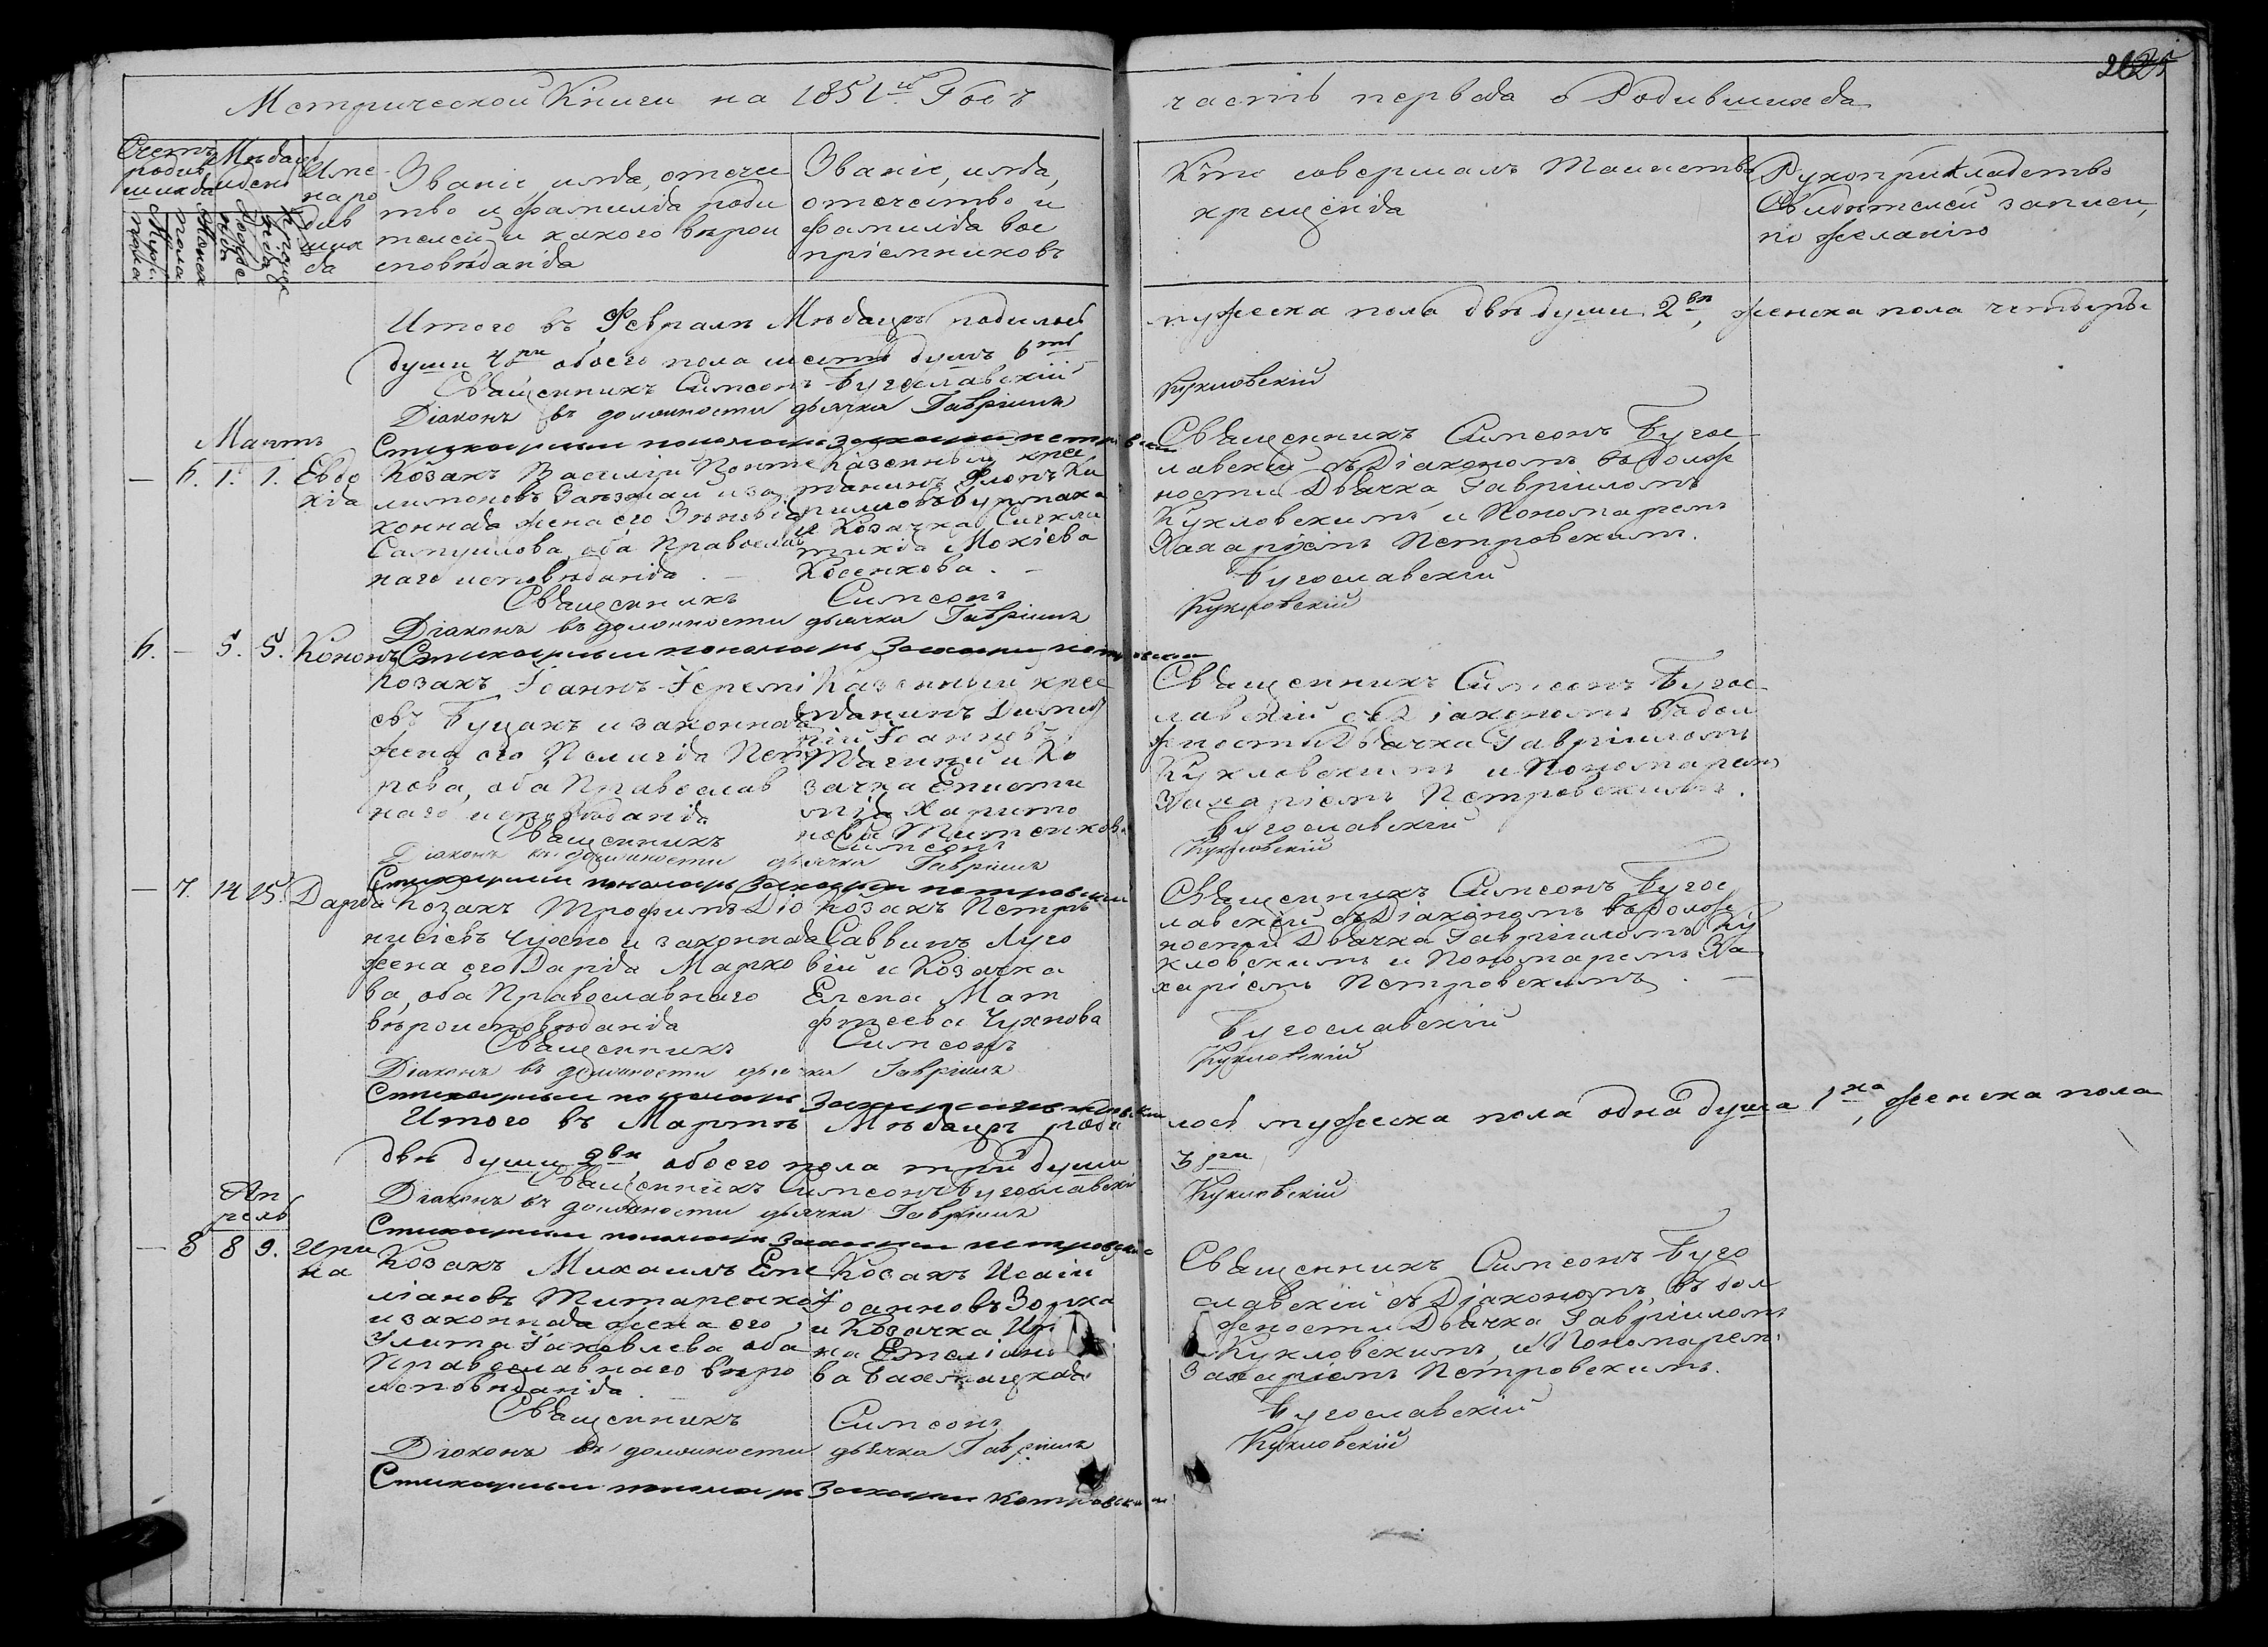 Метрической Книги на 1851й Годъ
часть первая о Родившихся
Счетъ родившихся
Мѣсяцъ и день
Имена родившихся
Званіе, имя, отече
ство и фамилія роди
телей и какого вѣрои
сповѣданія
Званіе, имя,
отечество и
фамилія вос
пріемниковъ
Кто совершалъ Таинство
крещенія
Рукоприкладство
Свидѣтелей записи,
по желанію
Муж. пола
Женск пола
Рожденія
Крещенія
Итого въ Февралѣ Мѣсяцѣ родилось
мужеска пола двѣ души 2вѣ, женска пола четыре
души 4ри обоего пола шесть душъ 6ть
Священникъ Симеонъ Бугославскій
Діаконъ въ должности дьячка Гавріилъ
Кукловскій
Стихарный пономарь Захарій Петровскій
Мартъ
— 6. 1. 1. Евдо
кія
Козакъ Василій Панте
лимоновъ и за
конная жена его Зѣновія
Самуилова, оба Православ
наго исповѣданія. —
Казенный крес
тянинъ
и Козачка
Мокіева
Косенкова. —
Священникъ Симеонъ Бугос
лавскій съ Діакономъ въ долж
ности Дьячка Гавріиломъ
Кукловскимъ и Пономаремъ
Захаріемъ Петровскимъ.
Священникъ Симеонъ
Бугославскій
Діаконъ въ должности дьячка Гавріилъ
Кукловскій
Стихарный пономарь Захарій Петровскій
6. — 5. 5. Кононъ
Козакъ Іоаннъ Іеремі
евъ Буцакъ и законная
жена его Пелагія Пет
рова, оба Православ
наго исповѣданія
Казенный крес
тянинъ Димит
рій Іоанновъ
и Ко
зачка Еписти
мія Харито
нова Титенкова
Священникъ Симеонъ Бугос
лавскій съ Діакономъ въ дол
жности Дьячка Гавріиломъ
Кукловскимъ и Пономаремъ
Захаріемъ Петровскимъ.
Священникъ Симеонъ
Бугославскій
Діаконъ въ должности дьячка Гавріилъ
Кукловскій
Стихарный пономарь Захарій Петровскій
— 7. 14 25. Дарія
Козакъ Трофимъ Діо
нисіевъ Чухно и законная
жена его Дарія Марко
ва, оба Православнаго
вѣроисповѣданія
Козакъ Петръ
Саввинъ Луго
вій и Козачка
Елена Мат
фтеева Чухнова
Священникъ Симеонъ Бугос
лавскій съ Діакономъ въ долж
ности Дьячка Гавріиломъ Ку
кловскимъ и Пономаремъ За
харіемъ Петровскимъ. —
Священникъ Симеонъ
Бугославскій
Діаконъ въ должности дьячка Гавріилъ
Кукловскій
Стихарный пономарь Захарій Петровскій
Итого въ Мартѣ Мѣсяцѣ роди
лось мужеска пола одна душа 1на, женска пола
двѣ души 2вѣ, обоего пола три души
3ри
Священникъ Симеонъ Бугославскій
Діаконъ въ должности дьячка Гавріилъ
Кукловскій
Стихарный пономарь Захарій Петровскій
Ап
рель
— 8 8 9. Ири
на
Козакъ Михаилъ Еме
ліановъ Титаренко
и законная жена его
Улита Іаковлева оба
Православнаго вѣро
исповѣданія.
Козакъ Исаій
Іоанновъ Зорка
и Козачка Ири
на Емеліано
ва Бахмацкая
Священникъ Симеонъ Буго
славскій съ Діакономъ, въ дол
жности Дьячка Гавріиломъ
Кукловскимъ, и Пономаремъ
Захаріемъ Петровскимъ.
Священникъ Симеонъ
Бугославскій
Діаконъ въ должности дьячка Гавріилъ
Кукловскій
Стихарный пономарь Захарій Петровскій